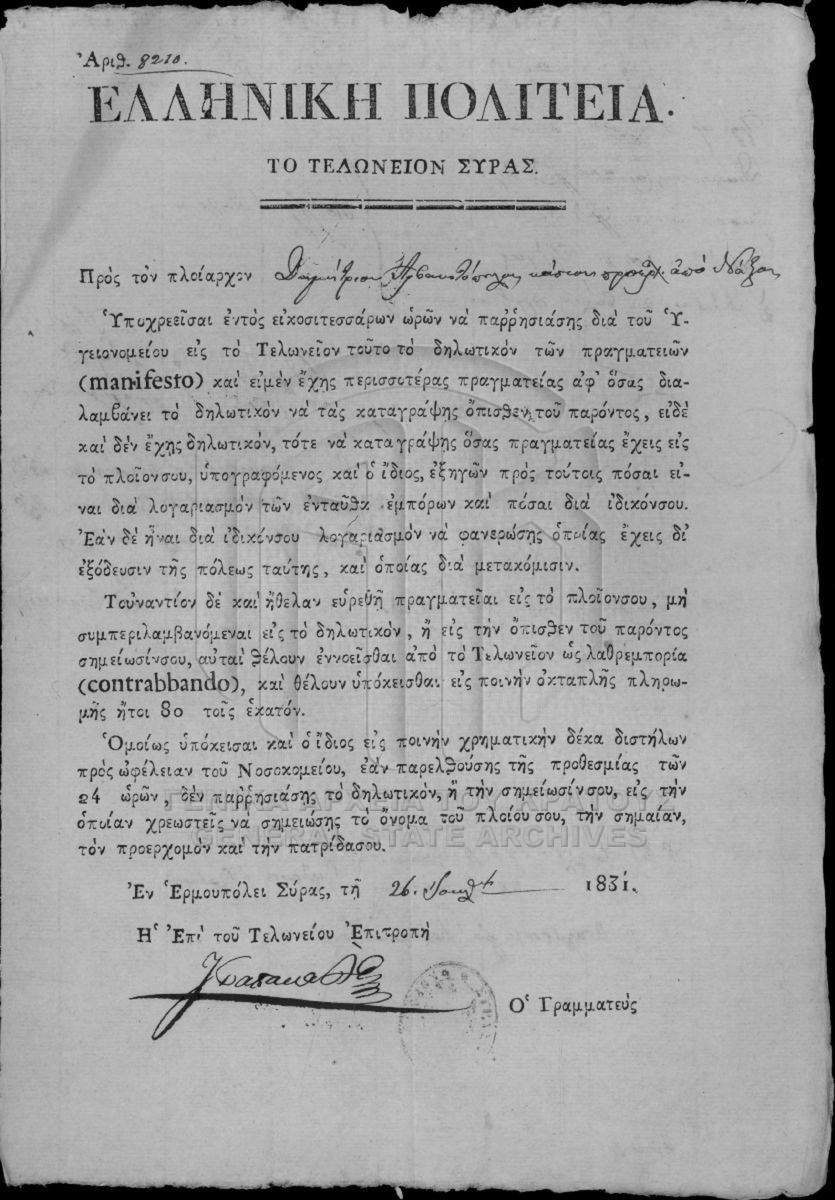 Ἀριθ. 8210.
ΕΛΛΗΝΙΚΗ ΠΟΛΙΤΕΙΑ.
ΤΟ ΤΕΛΩΝΕΙΟΝ ΣΥΡΑΣ.
Πρὸς τὸν πλοίαρχον Δημήτριον ἀπὸ Νάξον
Ὑποχρεεῖσαι ἐντὸς εἰκοσιτεσσάρων ὡρῶν νὰ παῤῥησιάσῃς διὰ τοῦ Ὑ-
γειονομείου εἰς τὸ Τελωνεῖον τοῦτο τὸ δηλωτικὸν τῶν πραγματειῶν
(manifesto) καὶ εἰμὲν ἔχῃς περισσοτέρας πραγματείας ἀφ' ὅσας δια-
λαμβάνει τὸ δηλωτικὸν νὰ τὰς καταγράψῃς ὄπισθεν τοῦ παρόντος, εἰδὲ
καὶ δὲν ἔχῃς δηλωτικὸν, τότε νὰ καταγράψῃς ὅσας πραγματείας ἔχεις εἰς
τὸ πλοῖονσου, ὑπογραφόμενος καὶ ὁ ἴδιος, ἐξηγῶν πρὸς τούτοις πόσαι εἶ-
ναι διὰ λογαριασμὸν τῶν ἐνταῦθα ἐμπόρων καὶ πόσαι διὰ ἰδικόνσου.
Ἐὰν δὲ ἦναι διὰ ἰδικόνσου λογαριασμὸν νὰ φανερώσῃς ὁποίας ἔχεις δι'
ἐξόδευσιν τῆς πόλεως ταύτης, καὶ ὁποίας διὰ μετακόμισιν.
Τοὐναντίον δὲ καὶ ἤθελαν εὑρεθῆ πραγματεῖαι εἰς τὸ πλοῖονσου, μὴ
συμπεριλαμβανόμεναι εἰς τὸ δηλωτικὸν, ἢ εἰς τὴν ὄπισθεν τοῦ παρόντος
σημείωσίνσου, αὐταὶ θέλουν ἐννοεῖσθαι ἀπὸ τὸ Τελωνεῖον ὡς λαθρεμπορία
(contrabbando), καὶ θέλουν ὑπόκεισθαι εἰς ποινὴν ὀκταπλῆς πληρω-
μῆς ἤτοι 80 τοῖς ἑκατόν.
Ὁμοίως ὑπόκεισαι καὶ ὁ ἴδιος εἰς ποινὴν χρηματικὴν δέκα διστήλων
πρὸς ὠφέλειαν τοῦ Νοσοκομείου, ἐὰν παρελθούσης τῆς προθεσμίας τῶν
24 ὡρῶν, δὲν παῤῥησιάσῃς τὸ δηλωτικὸν, ἢ τὴν σημείωσίνσου, εἰς τὴν
ὁποίαν χρεωστεῖς νὰ σημειώσῃς τὸ ὄνομα τοῦ πλοίου σου, τὴν σημαίαν,
τὸν προερχομὸν καὶ τὴν πατρίδασου.
ΓΕΝΙΚΑ ΑΡΧΕΙΑ ΤΟΥ ΚΡΑΤΟΥΣ
GENERAL STATE ARCHIVES
Ἐν Ἑρμουπόλει Σύρας, τῇ 26. 1831.
Ἡ Ἐπὶ τοῦ Τελωνείου Ἐπιτροπὴ
Ὁ Γραμματεὺς